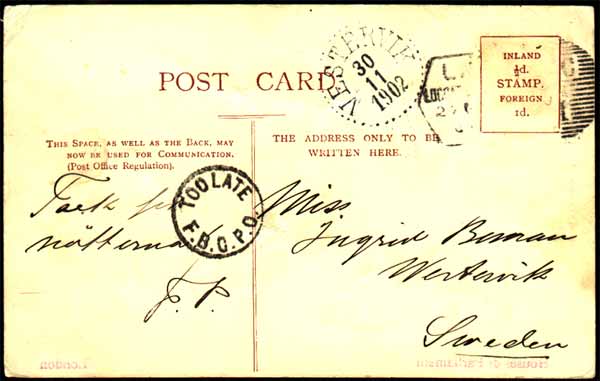 POST CARD.
VESTERVIK
30
11
1902
INLAND
½d.
STAMP.
FOREIGN
1d.
THIS SPACE, AS WELL AS THE BACK, MAY
NOW BE USED FOR COMMUNICATION.
(Post Office Regulation).
THE ADDRESS ONLY TO BE
WRITTEN HERE.
TOO LATE
F.B.G.P.O.
Tack för
nötterna
F. P.
Miss
Ingrid Beman
Westervik
Sweden
London
Houses of Parliament